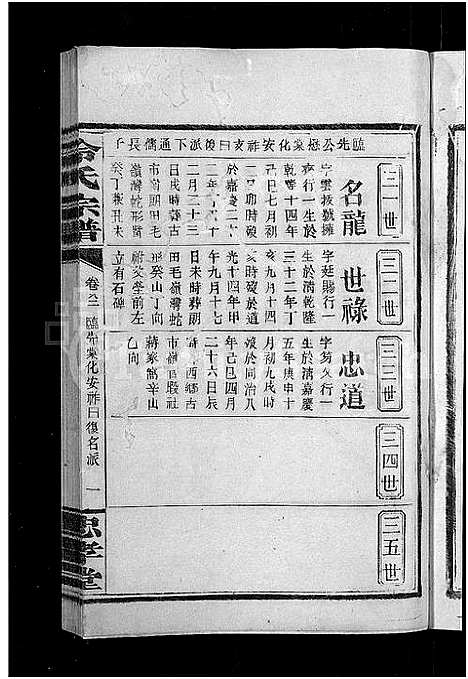 三一世
三二世
三三世
三四世
三五世
臨先公懋棠化安祚亥曰復派下通儒長子
名龍
字雲拔號擁
乾行一生於
乾隆十四年
己巳七月初
於嘉慶二十
二年
二月二十三
日戌時葬古
市嶺頭田毛
嶺灣蛇形酉
癸丁兼丑未
世祿
字廷賜行一
生於清乾隆
三十二年丁
亥九月十四
亥時歿於道
光十四年甲
午九月十七
日未時葬朗
田毛嶺灣蛇
形癸山丁向
附父塋前左
立有石碑
忠道
字芴久行一
生於清嘉慶
五年庚申十
月初九戌時
歿於同治八
年己巳四月
二十六日辰
時葬西鄉古
市嶺官塅社
蔣家窩辛山
乙向
冷氏宗譜
卷之二 臨先棠化安祚曰復名派 一
忠孝堂